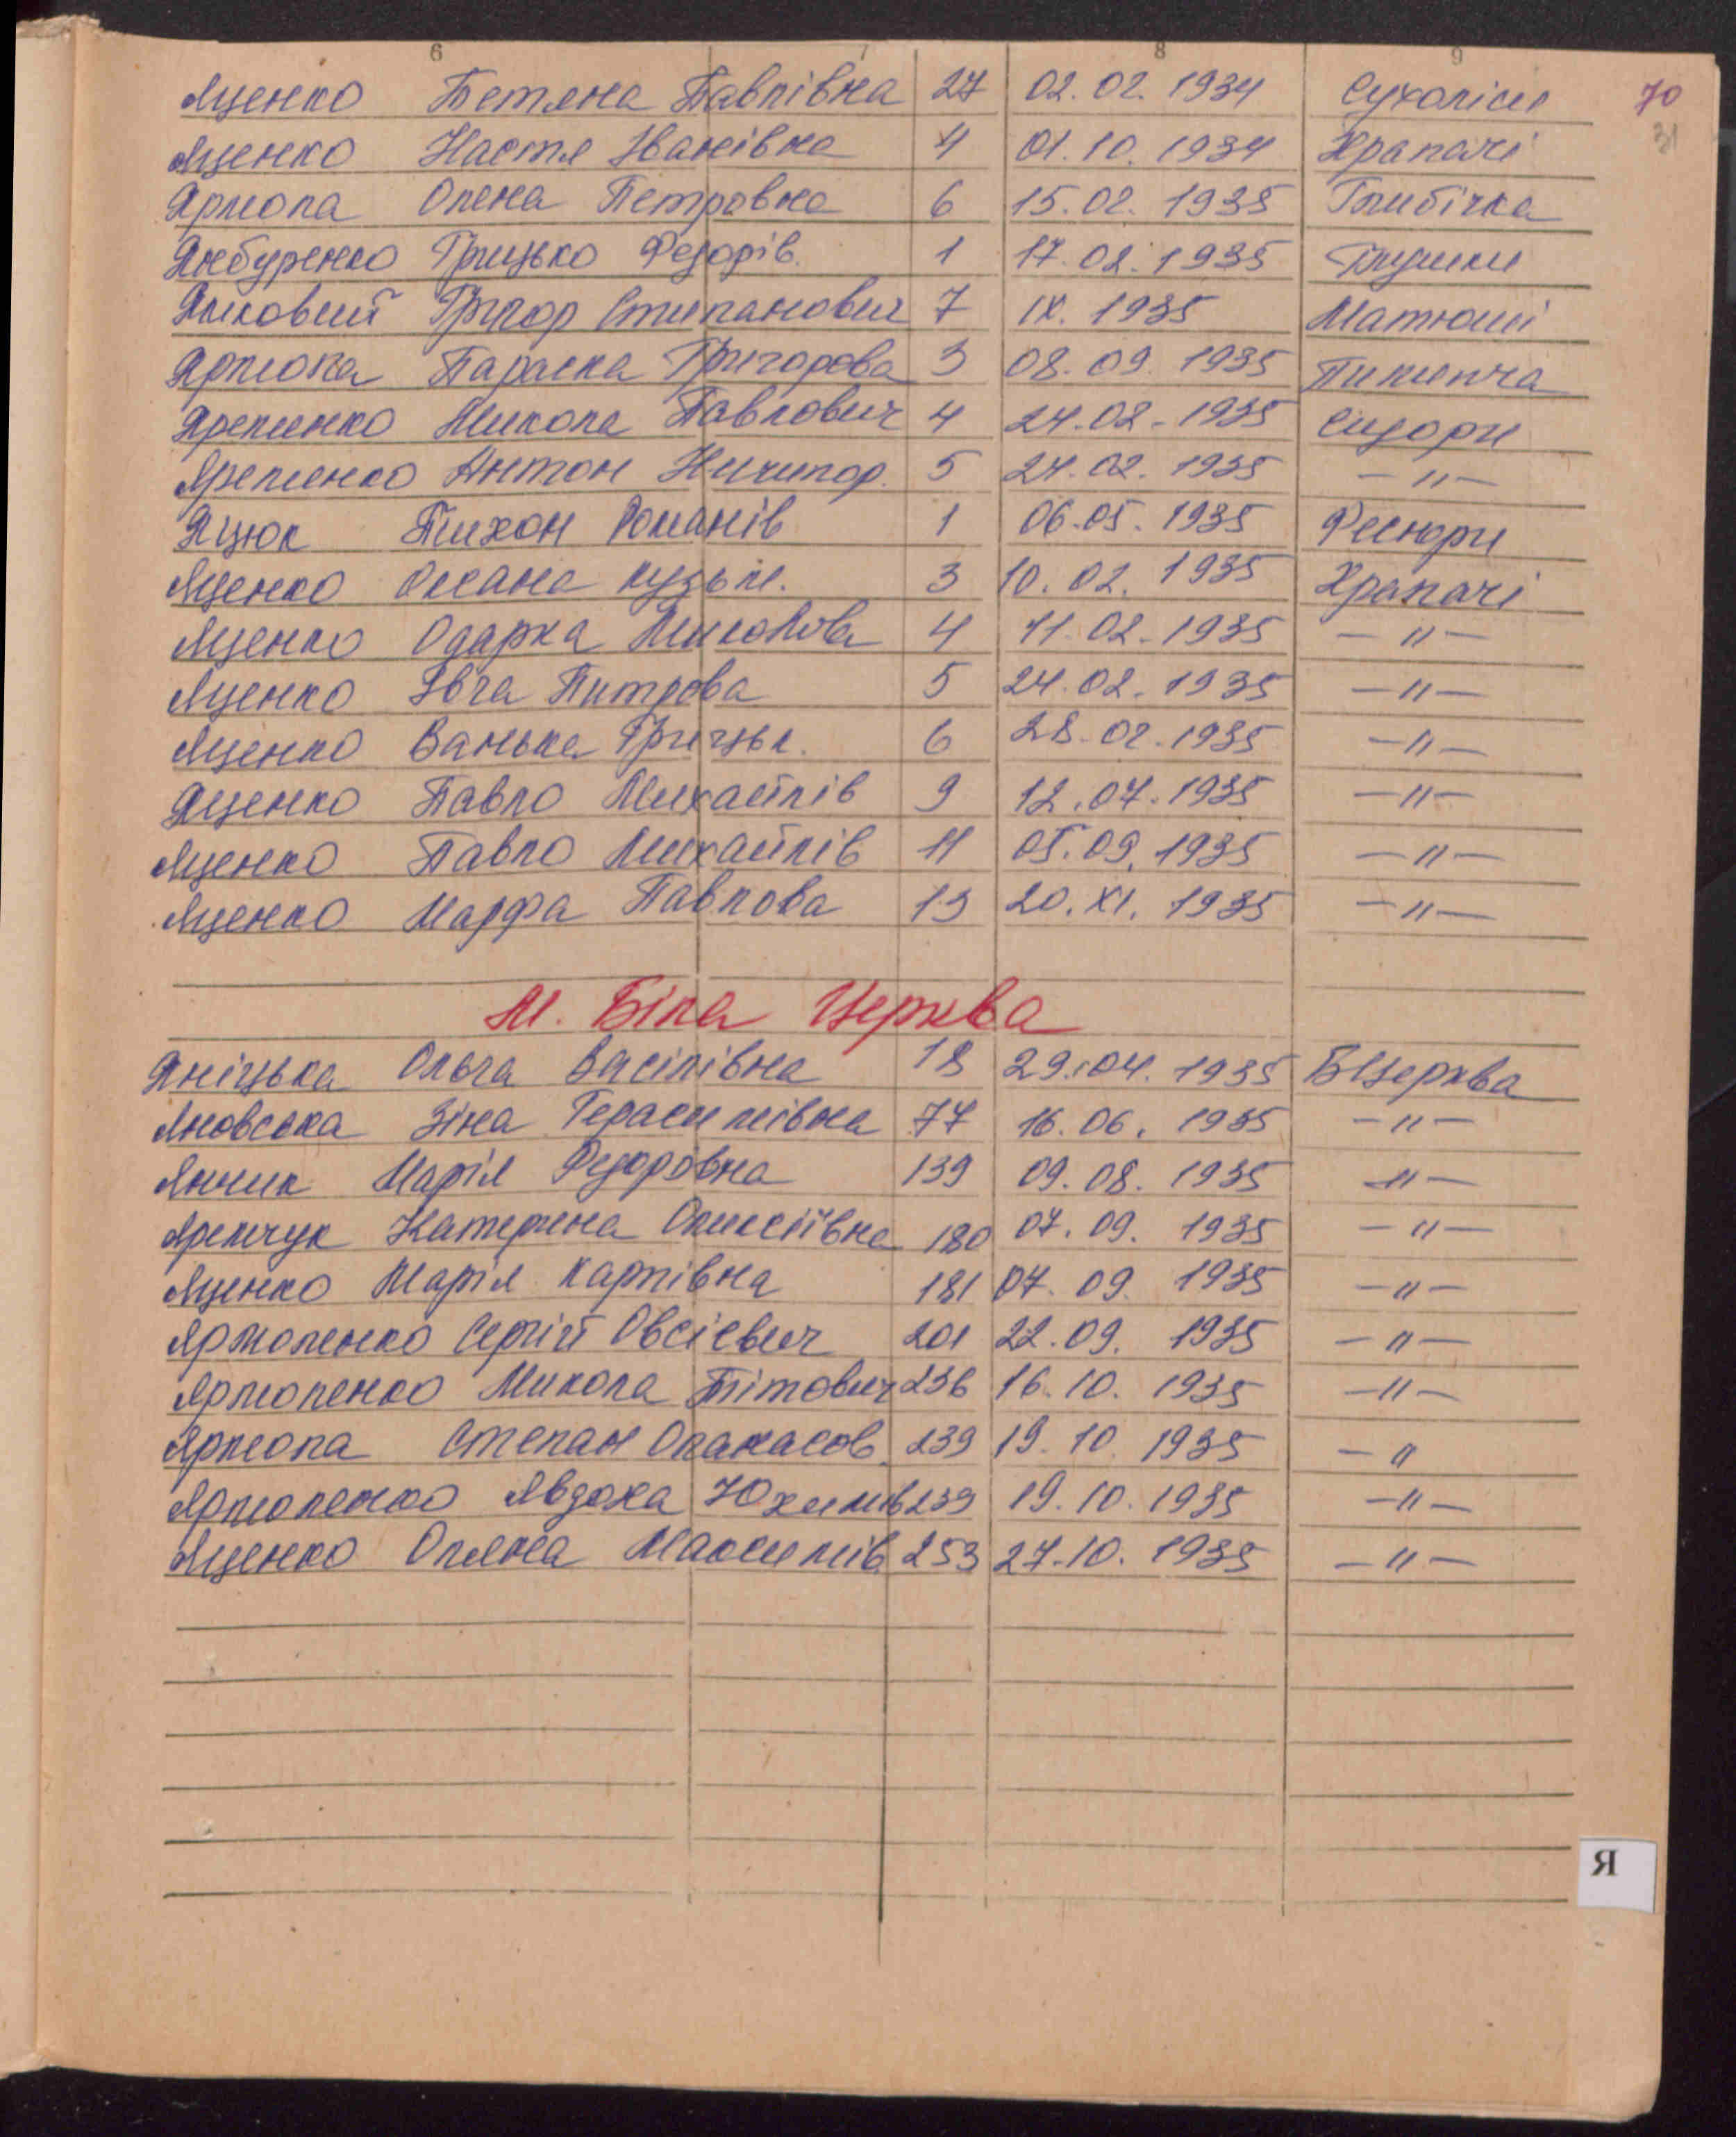 6 7 8 9
Яценко Тетяна Павлівна 27 02.02.1934 Сухоліси 70
Яценко Настя Іванівна 4 01.10.1934 Храпачі 31
Ярмола Олена Петровна 6 15.02.1935 Глибічка
Янбуренко Грицько Федорів. 1 17.02.1935 Глушки
Григор Степанович 7 IX.1935 Матюші
Ярмола Параска Григорова 3 08.09.1935 Пилипча
Яременко Микола Павлович 4 24.02.1935 Сидори
Яременко Антон Ничипор. 5 24.02.1935 -"-
Яцюк Тихон Романів 1 06.05.1935 Фесюри
Яценко Оксана Кузьм. 3 10.02.1935 Храпачі
Яценко Одарка Миколова 4 11.02.1935 -"-
Яценко Івга Питрова 5 24.02.1935 -"-
Яценко Ванька Грицьк. 6 28.02.1935 -"-
Яценко Павло Михайлів 9 12.07.1935 -"-
Яценко Павло Михайлів 11 05.09.1935 -"-
Яценко Марфа Павлова 13 20.XI.1935 -"-
М. Біла Церква
Яніцька Ольга Васілівна 18 29.04.1935 БЦерква
Яновська Зіна Герасимівна 77 16.06.1935 -"-
Янчик Марія Федоровна 139 09.08.1935 -"-
Яремчук Катерина Олексіївна 180 07.09.1935 -"-
Яценко Марія Карпівна 181 07.09.1935 -"-
Ярмоленко Сергій Овсієвич 201 22.09.1935 -"-
Ярмоленко Микола Тітович 236 16.10.1935 -"-
Ярмола Степан Опанасов. 239 19.10.1935 -"
Ярмоленко Явдоха Юхимів 239 19.10.1935 -"-
Яценко Оляна Максимів 253 27.10.1935 -"-
Я